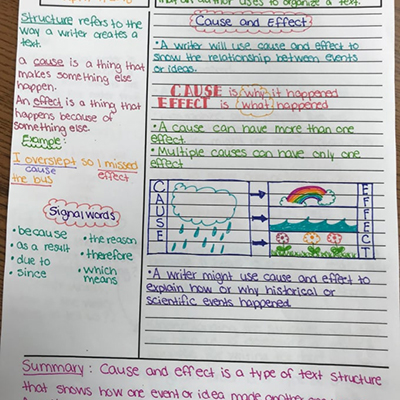 that an author uses to organize a text.
Structure refers to the
way a writer creates a
text.
a cause is a thing that
makes something else
happen.
An effect is a thing that
happens because of
something else.
Example:
I overslept so I missed
cause
effect
the bus
Signal words
• because
• as a result
• due to
• since
• the reason
• therefore
• which
means
Cause and Effect
• A writer will use cause and effect to
show the relationship between events
or ideas.
CAUSE is why it happened
EFFECT is what happened
• A cause can have more than one
effect.
• Multiple causes can have only one
effect
CAUSE
EFFECT
• A writer might use cause and effect to
explain how or why historical or
scientific events happened.
Summary: Cause and effect is a type of text structure
that shows how one event or idea made another